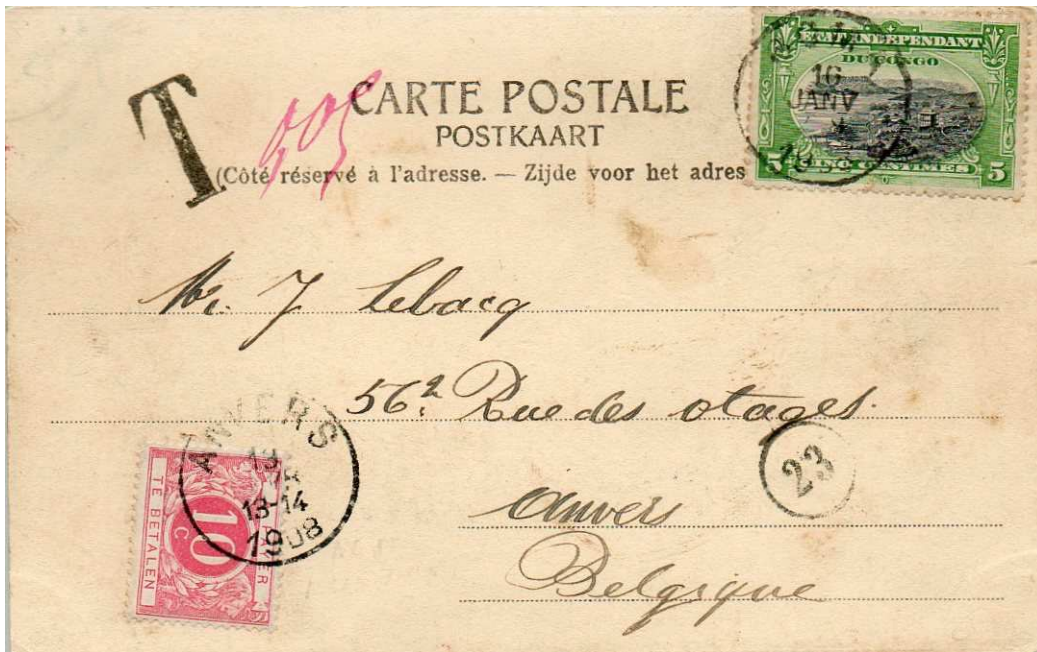 T
CARTE POSTALE
POSTKAART
(Côté réservé à l'adresse. — Zijde voor het adres
ETAT INDEPENDANT
DU CONGO
16
JANV
5 CINQ CENTIMES 5
Mr. J Lebacq
56² Rue des otages.
Anvers
Belgique
23
ANVERS
13-14
1908
10
C
TE BETALEN